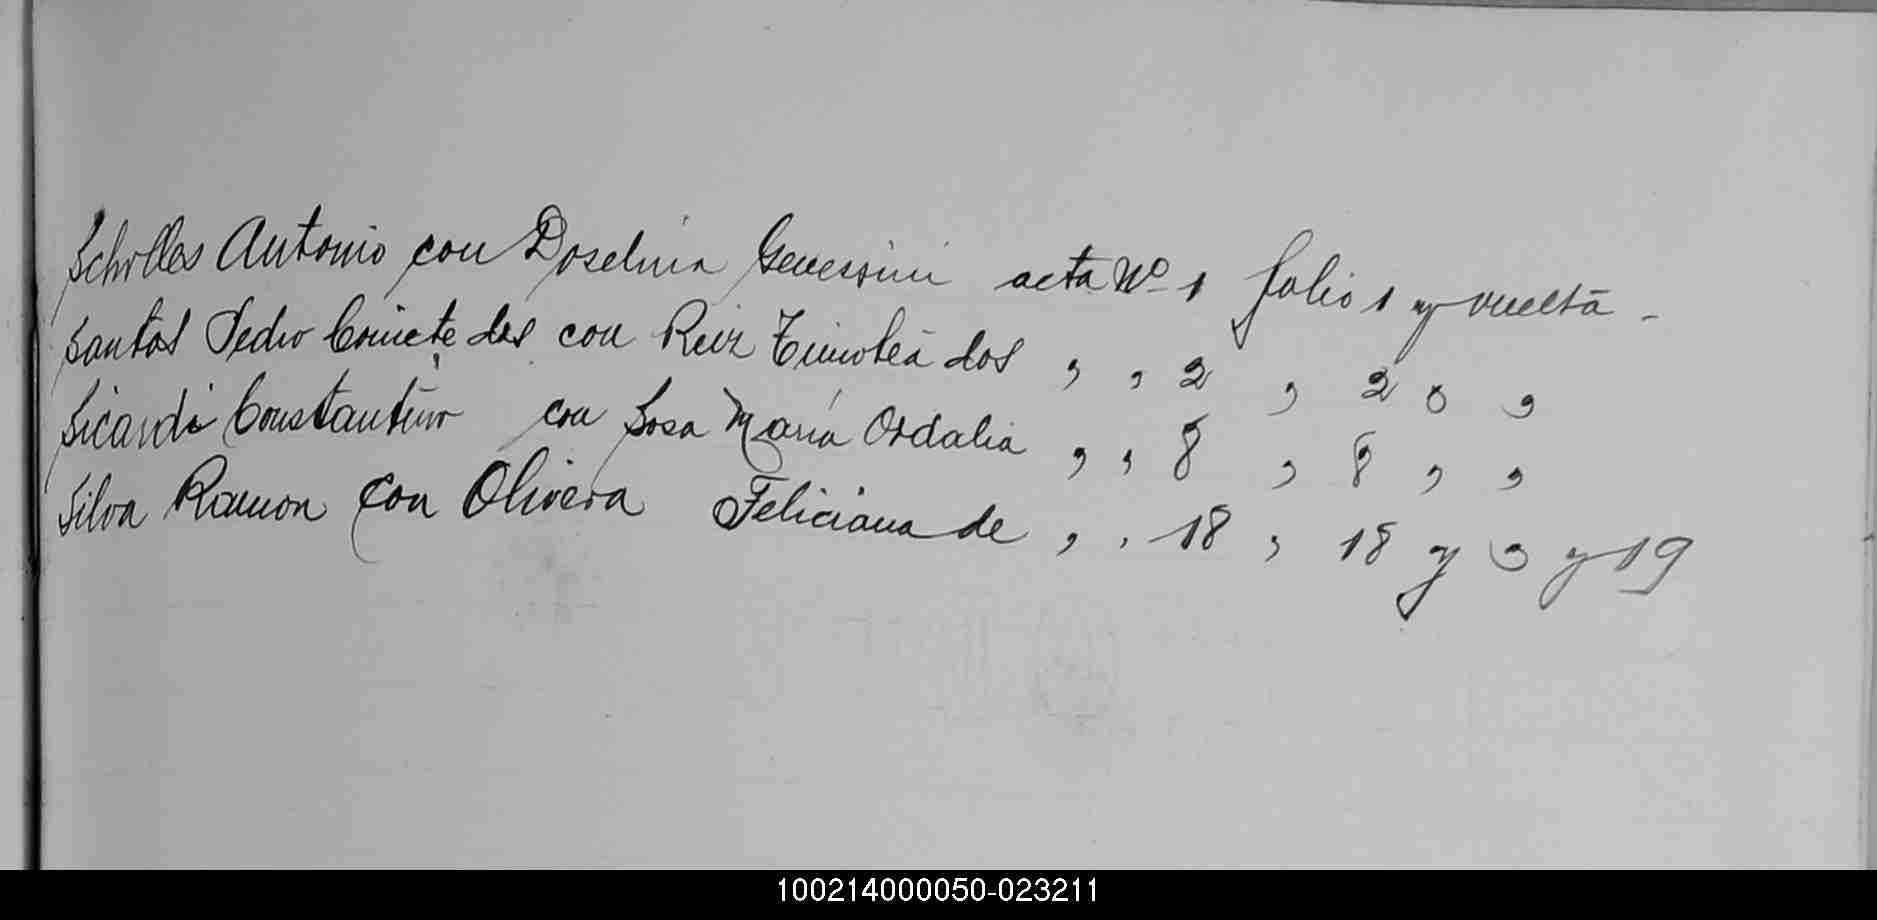 Schilles Antonio con Doselina Genessini acta Nº 1 folio 1 y vuelta -
Santos Pedro dos con Ruiz Timotea dos , , 2 , 2 , ,
Sicardi Constantino con Sosa María Ordalia , , 8 , 8 , ,
Silva Ramon con Olivera Feliciana de , , 18 , 18 y , y 19
100214000050-023211